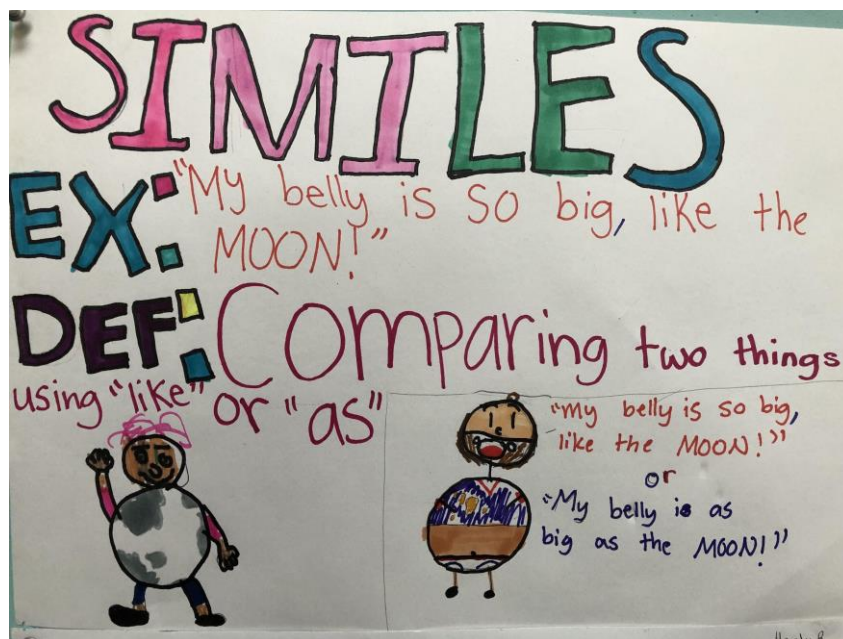 SIMILES
EX: "My belly is so big, like the
MOON!"
DEF: Comparing two things
using "like" or "as"
"My belly is so big,
like the MOON!"
or
"My belly is as
big as the MOON!"